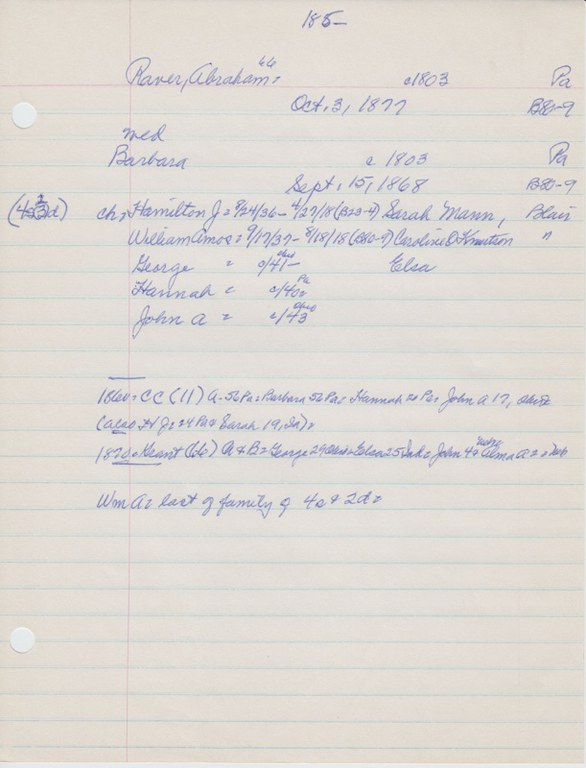 185-
Raver, Abraham " = c1803 Pa
Oct. 3, 1877 B80-9
wed
Barbara c 1803 Pa
Sept. 15, 1868 B80-9
(4s 2d) ch; Hamilton J = 8/24/36 - 4/27/18 (B23-9) Sarah Mann, Blair
William Amos = 9/17/37 - 8/18/18 (B80-9) Caroline D Knutson "
George = c/41 - Elsa
Hannah = c/40 = Pa
John A = c/43 Ohio
1860 = CC (11) A - 56 Pa = Barbara 56 Pa = Hannah 20 Pa = John A 17, Ohio =
(also H J = 24 Pa = Sarah 19, Ia) =
1870 = Grant (66) A & B = George 29 Ohio = Elsa 25 Ind = John 4 = Alma A 2 =
Wm A = last of family of 4s & 2d =